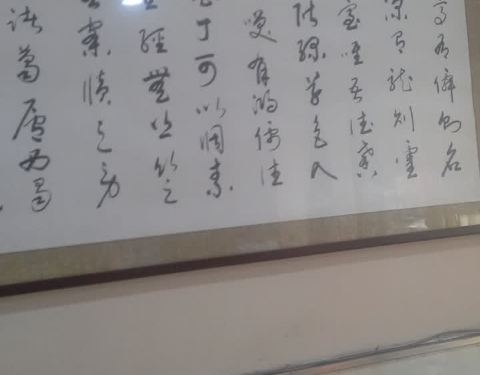 高有僊則名
深有龍則靈
室唯吾德馨
階綠草色入
笑有鴻儒往
丁可以調素
經無絲竹之
案牘之勞
諸葛廬西蜀